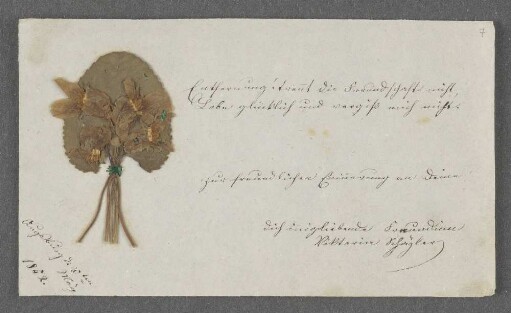 7
Entfernung trent die Freundschaft nicht,
Lebe glücklich und vergiß mich nicht.
zur freundlichen Erinnerung an Deine
dich innigliebende Freundinn
Viktorin Schäzler
Augsburg den
May
1842.